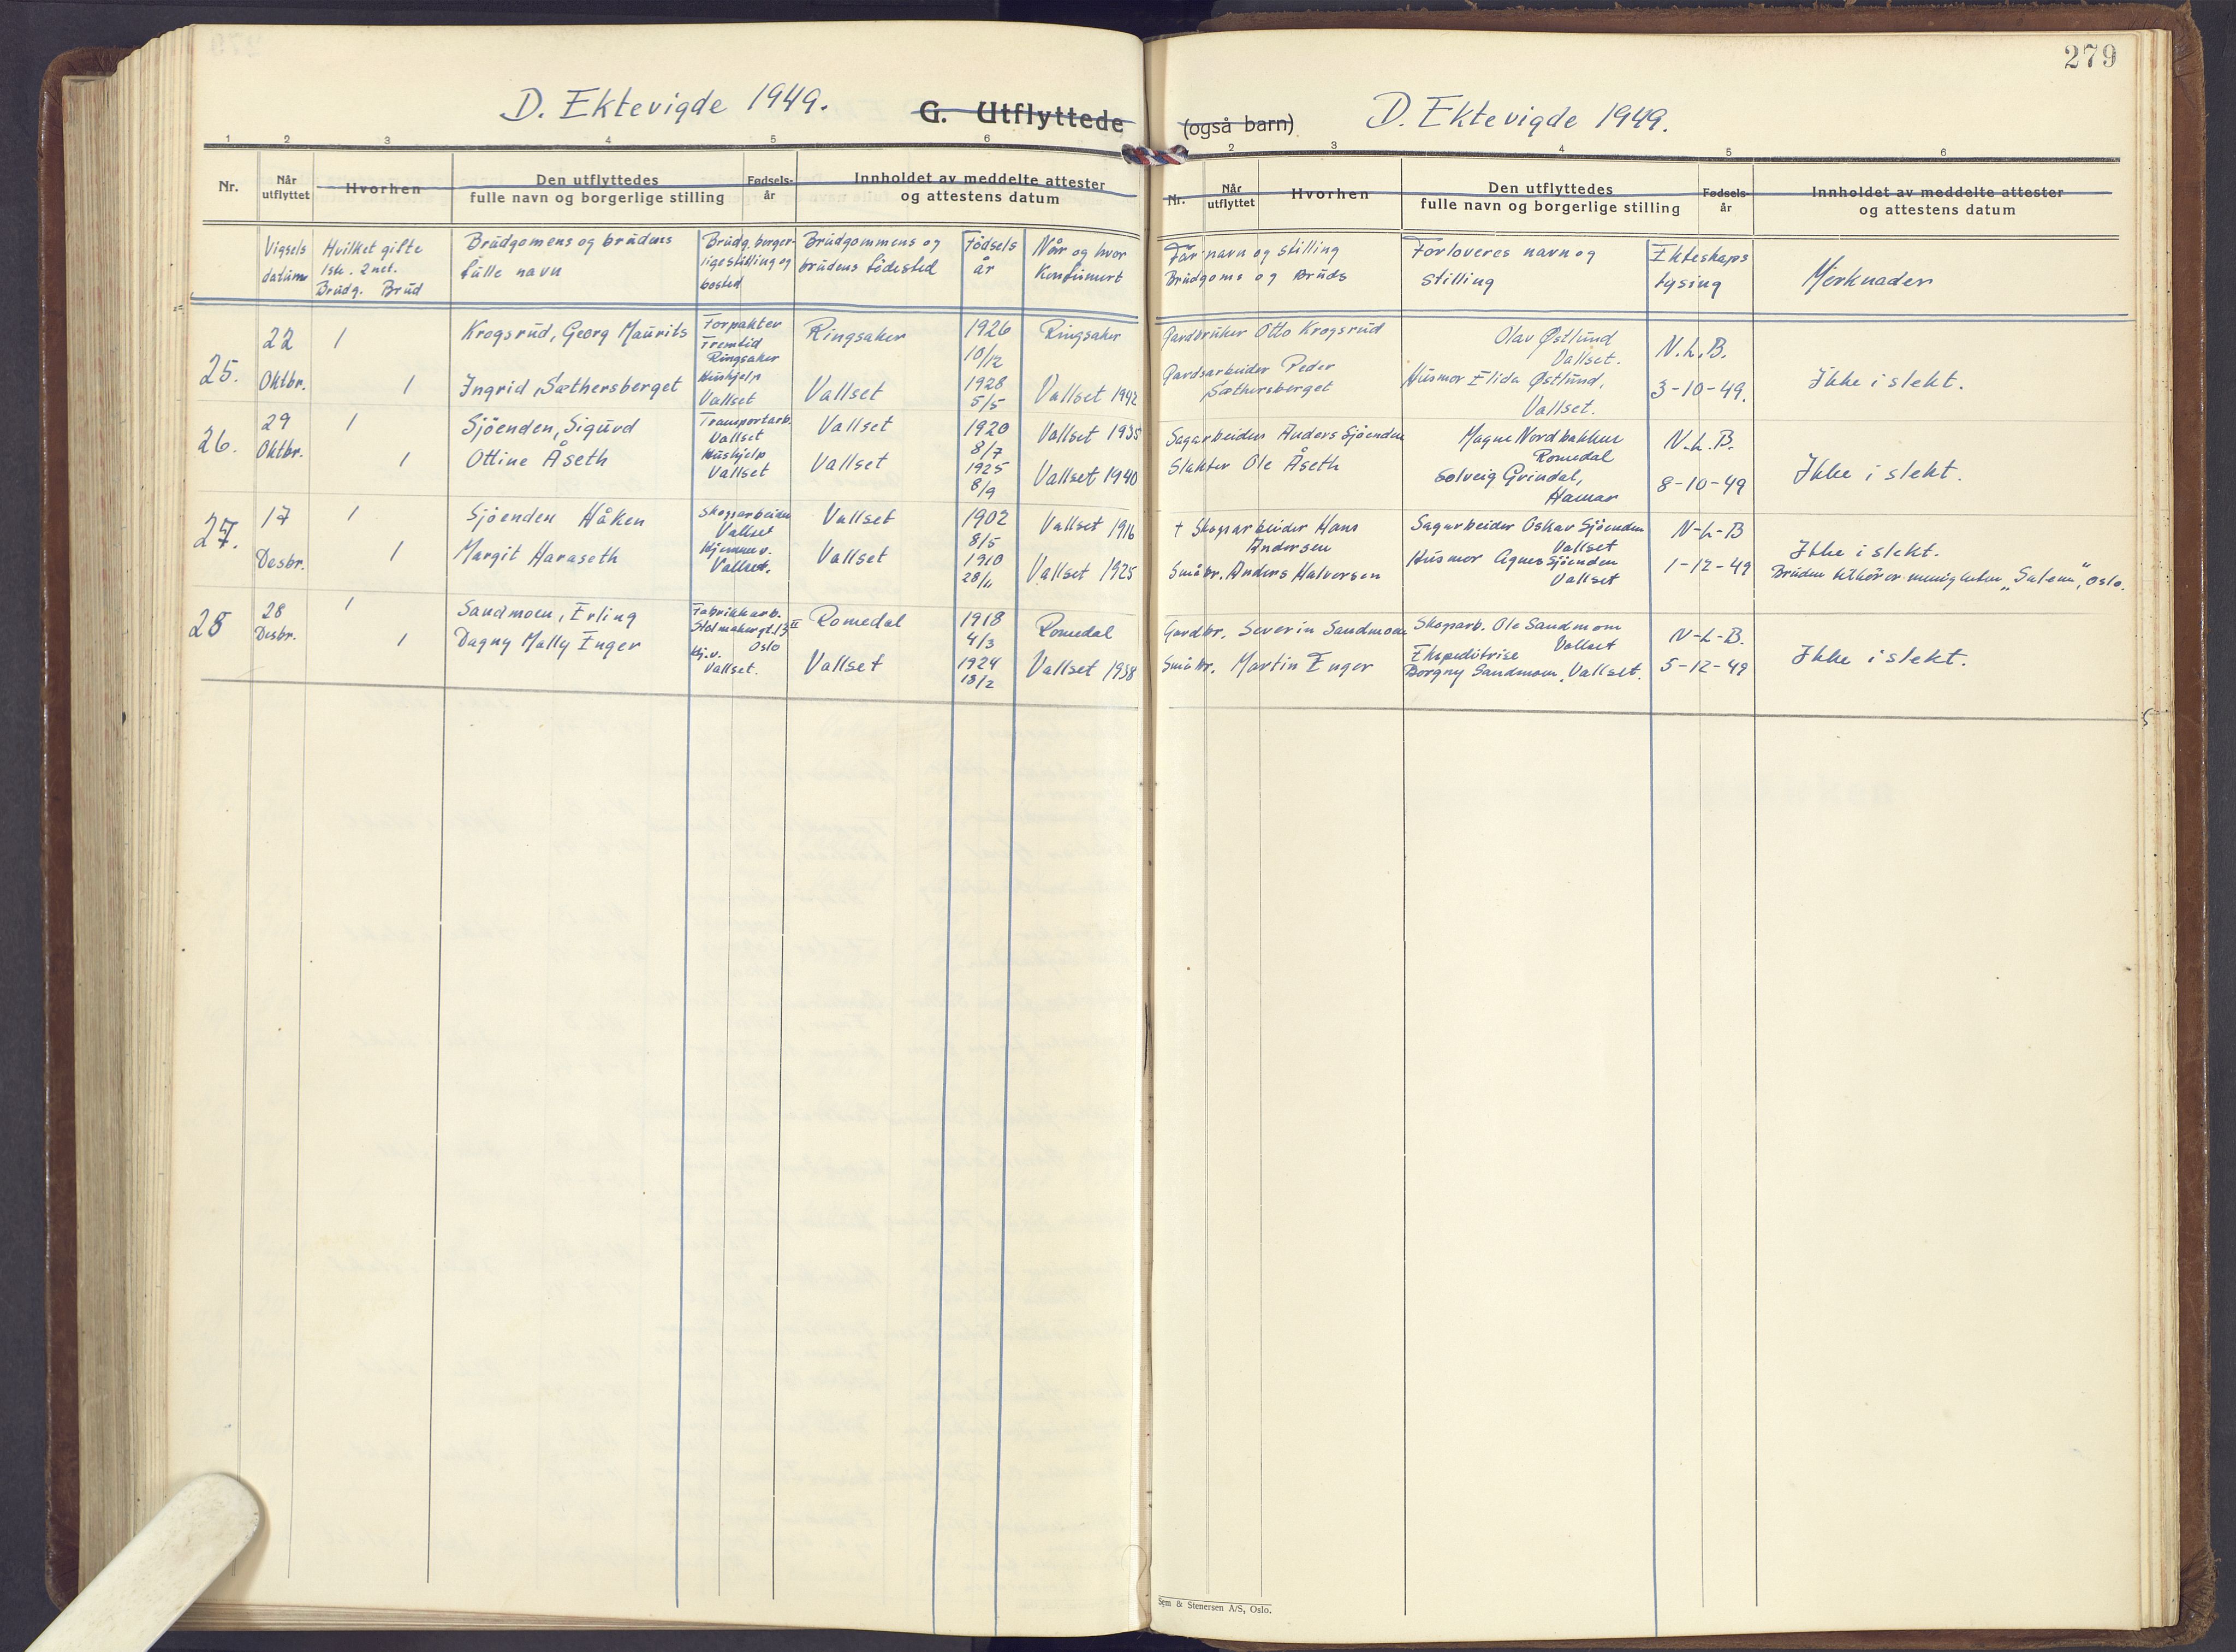 279
D. Ektevigde 1949.
G. Utflyttede
1 2 3 4 5 6
Nr.
Når utflyttet
Hvorhen
Den utflyttedes
fulle navn og borgerlige stilling
Fødsels-
år
Innholdet av meddelte attester
og attestens datum
Vigsels
datum
Hvilket gifte
1ste. 2net.
Brudg. Brud
Brudgomens og brudens
fulle navn
Brudg. borger-
lige stilling og
bosted
Brudgommens og
brudens fødested
Fødsels
år
Når og hvor
Konfirmert
25.
22
Oktbr.
1
1
Krogsrud, Georg Maurits
Ingrid Sæthersberget
Forpakter
Fremtid
Ringsaker
Hushjelp
Vallset
Ringsaker
Vallset
1926
10/12
1928
5/5
Ringsaker
Vallset 1942
26.
29
Oktbr.
1
1
Sjöenden, Sigurd
Ottine Åseth
Transportarb.
Vallset
Hushjelp
Vallset
Vallset
Vallset
1920
8/7
1925
8/9
Vallset 1935
Vallset 1940
27.
17
Desbr.
1
1
Sjöenden Håken
Margit Haraseth
Skogsarbeider
Vallset
Hjemmev.
Vallset.
Vallset
Vallset
1902
8/5
1910
28/11
Vallset 1916
Vallset 1925
28
28
Desbr.
1
1
Sandmoen, Erling
Dagny Mally Enger
Fabrikkarb.
Stolmakergt. 13 II
Oslo
Hj.v.
Vallset.
Romedal
Vallset
1918
4/3
1924
18/2
Romedal
Vallset 1938
(også barn)
D. Ektevigde 1949.
2 3 4 5 6
Nr.
Når
utflyttet
Hvorhen
Den utflyttedes
fulle navn og borgerlige stilling
Fødsels-
år
Innholdet av meddelte attester
og attestens datum
Far navn og stilling
Brudgoms og Bruds
Forloveres navn og
stilling
Ekteskaps
lysing
Merknader
Gardbruker Otto Krogsrud
Gardsarbeider Peder
Sæthersberget
Olav Østlund
Vallset.
Husmor Elida Østlund,
Vallset.
N.L.B.
3-10-49.
Ikke i slekt.
Sagarbeider Anders Sjøenden
Slakter Ole Åseth
Magne Nordbakken
Romedal
Solveig Grindal,
Hamar
N.L.B.
8-10-49
Ikke i slekt.
+ Skogsarbeider Hans
Andersen
Småbr. Anders Halvorsen
Sagarbeider Oskar Sjöenden
Vallset
Husmor Agnes Sjöenden
Vallset
N-L-B
1-12-49
Ikke i slekt.
Bruden tilhörer menigheten „Salem“, Oslo.
Gardbr. Severin Sandmoen
Småbr. Martin Enger
Skogsarb. Ole Sandmoen
Vallset
Ekspeditrise
Borgny Sandmoen, Vallset.
N-L-B.
5-12-49
Ikke i slekt.
Sem & Stenersen A/S, Oslo.